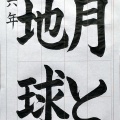 月と
地球
六年